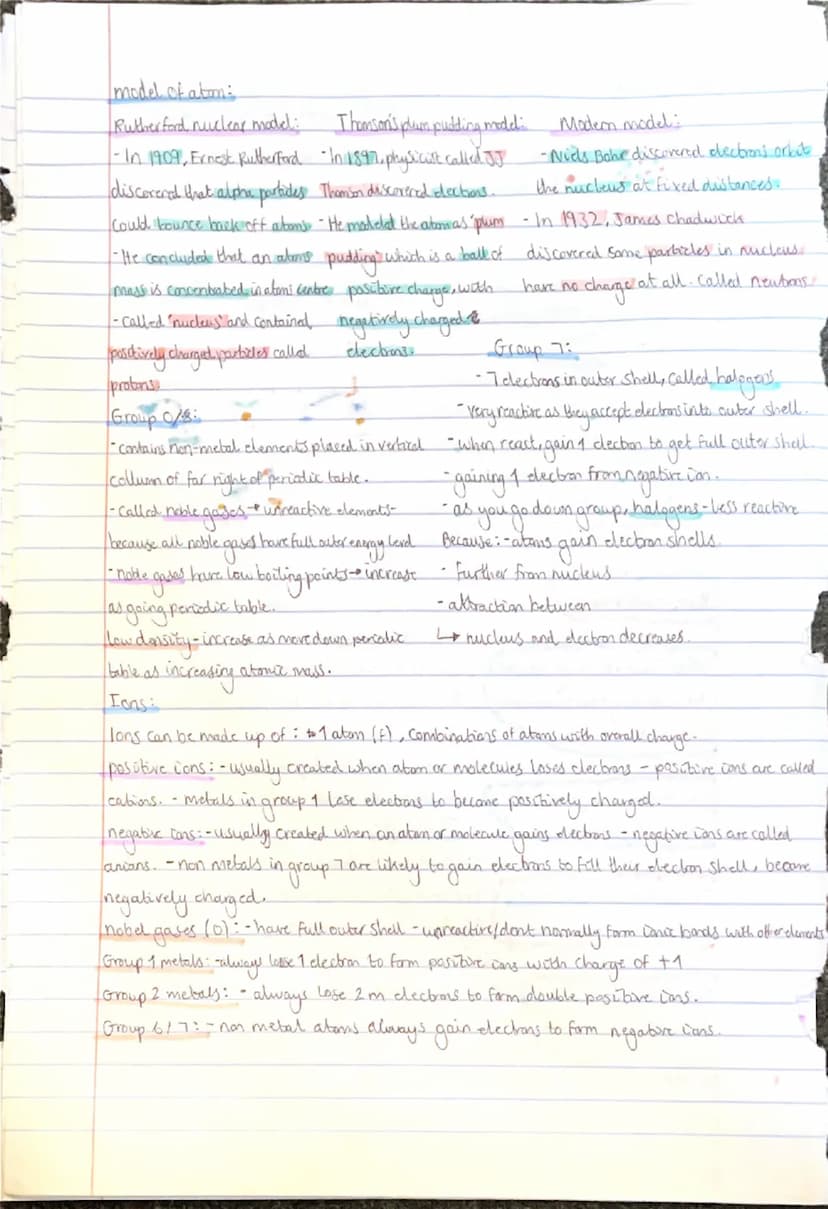 model of atom:
Rutherford nuclear model:
- In 1909, Ernest Rutherford
discovered that alpha particles
could bounce back off atoms
- He concluded that an atoms
mass is concentrated in atoms centre
- called 'nucleus' and contained
positively charged particles called
protons
Thomson's plum pudding model:
- In 1897, physicist called JJ
Thomson discovered electrons.
- He modeled the atom as 'plum
pudding' which is a ball of
positive charge, with
negatively charged
electrons.
Modern model:
- Niels Bohr discovered electrons orbit
the nucleus at fixed distances.
- In 1932, James chadwick
discovered some particles in nucleus
have no charge at all. called newtrons
Group 0/8:
- contains non-metal elements placed in vertical
collumn of far right of periodic table.
- Called noble gases → unreactive elements-
because all noble gases have full outer energy level
- noble gases have low boiling points → increase
as going periodic table.
low density - increase as move down periodic
table as increasing atomic mass.
Group 7:
- 7 electrons in outer shell, called halogens
- very reactive as they accept electrons into outer shell.
- when react, gain 1 electron to get full outer shell.
- gaining 1 electron from negative ion.
- as you go down group, halogens - less reactive
Because: - atoms gain electron shells
- further from nucleus
- attraction between
↳ nucleus and electron decreases.
Ions:
Ions can be made up of: 1 atom (F), combinations of atoms with overall charge.
positive ions: - usually created when atom or molecules loses electrons - positive ions are called
cations. - metals in group 1 lose electrons to become positively charged.
negative ions: - usually created when an atom or molecule gains electrons - negative ions are called
anions. - non metals in group 7 are likely to gain electrons to fill their electron shell, become
negatively charged.
nobel gases (0): - have full outer shell - unreactive/dont normally form ionic bonds with other elements
Group 1 metals: - always lose 1 electron to form positive ions with charge of +1
Group 2 metals: - always lose 2 m electrons to form double positive ions.
Group 6/7: - non metal atoms always gain electrons to form negative ions.